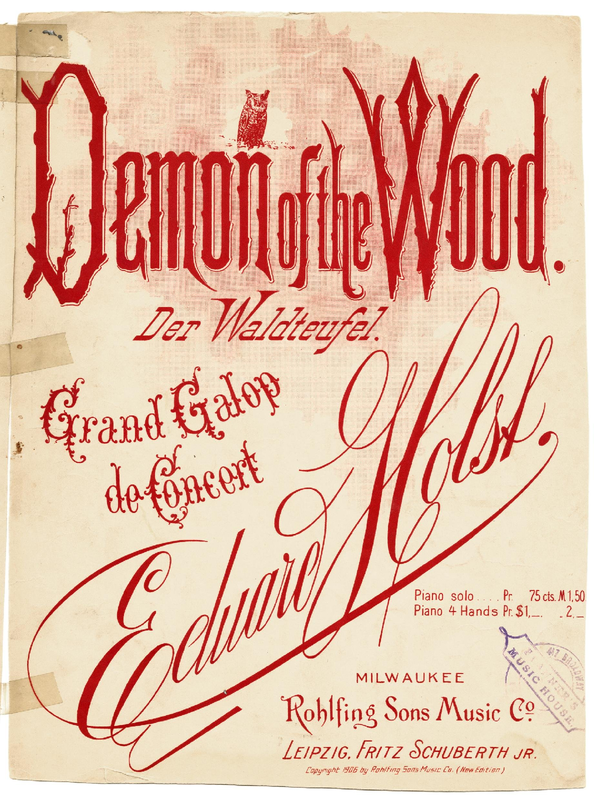 Demon of the Wood.
Der Waldteufel.
Grand Galop
de Concert
Eduard Holst.
Piano solo .... Pr. 75 cts. M 1,50
Piano 4 Hands Pr. $1,__. . 2,_
MILWAUKEE
Rohlfing Sons Music Co.
LEIPZIG, FRITZ SCHUBERTH JR.
Copyright 1906 by Rohlfing Sons Music Co. (New Edition)
BROADWAY
MUSIC HOUSE